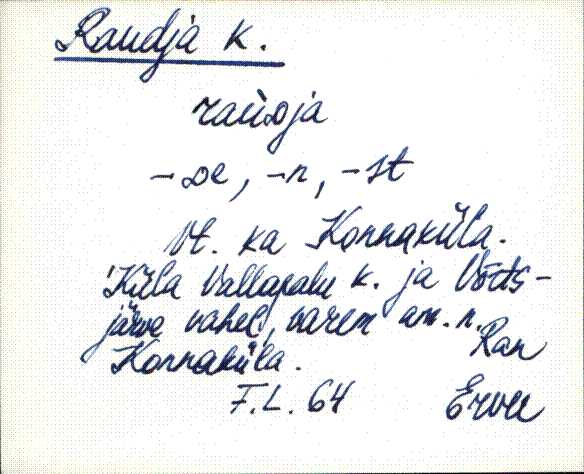 Raudja k.
rau̯ᴅja
-ᴅe, -n, -st
Vt. ka Konnaküla.
'Küla Vallapalu k. ja Võrts-
järve vahel, varem am. n.
Konnaküla.
Ran
F.L. 64